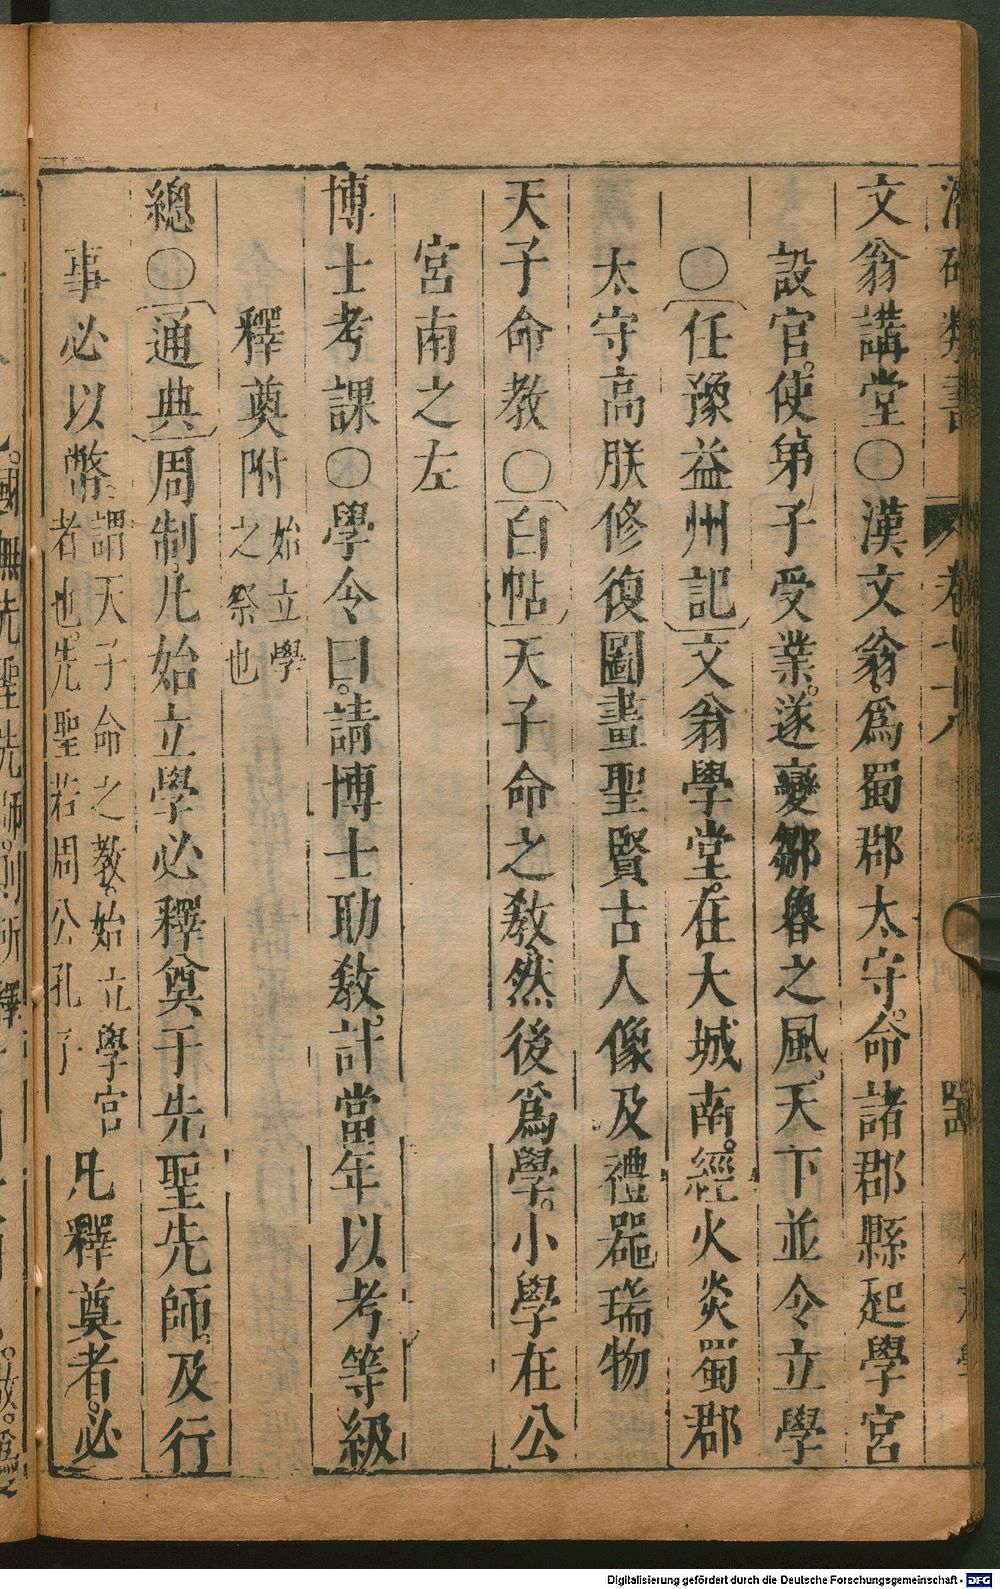 潛確類書 卷七十八
文翁講堂○漢文翁爲蜀郡太守命諸郡縣起學宮
設官使第子受業遂變鄒魯之風天下並令立學
○任豫益州記文翁學堂在大城南經火災蜀郡
太守高朕修復圖畫聖賢古人像及禮器瑞物
天子命教○白帖天子命之敎然後爲學小學在公
宮南之左
博士考課○學令曰請博士助敎計當年以考等級
釋奠附始立學之祭也
總○通典周制凡始立學必釋奠于先聖先師及行
事必以幣謂天子命之教始立學宮者也先聖若周公孔子凡釋奠者必
國無先聖先師則所釋
Digitalisierung gefördert durch die Deutsche Forschungsgemeinschaft - DFG